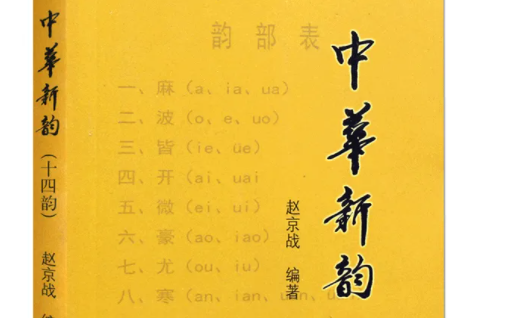 中華新韵
(十四韵)
赵京战
韵部表
一、麻(a、ia、ua)
二、波(o、e、uo)
三、皆(ie、üe)
四、开(ai、uai
五、微(ei、ui)
六、豪(ao、iao)
七、尤(ou、iu)
八、寒(an、ian、uan、üan
中華新韵
赵京战 编著